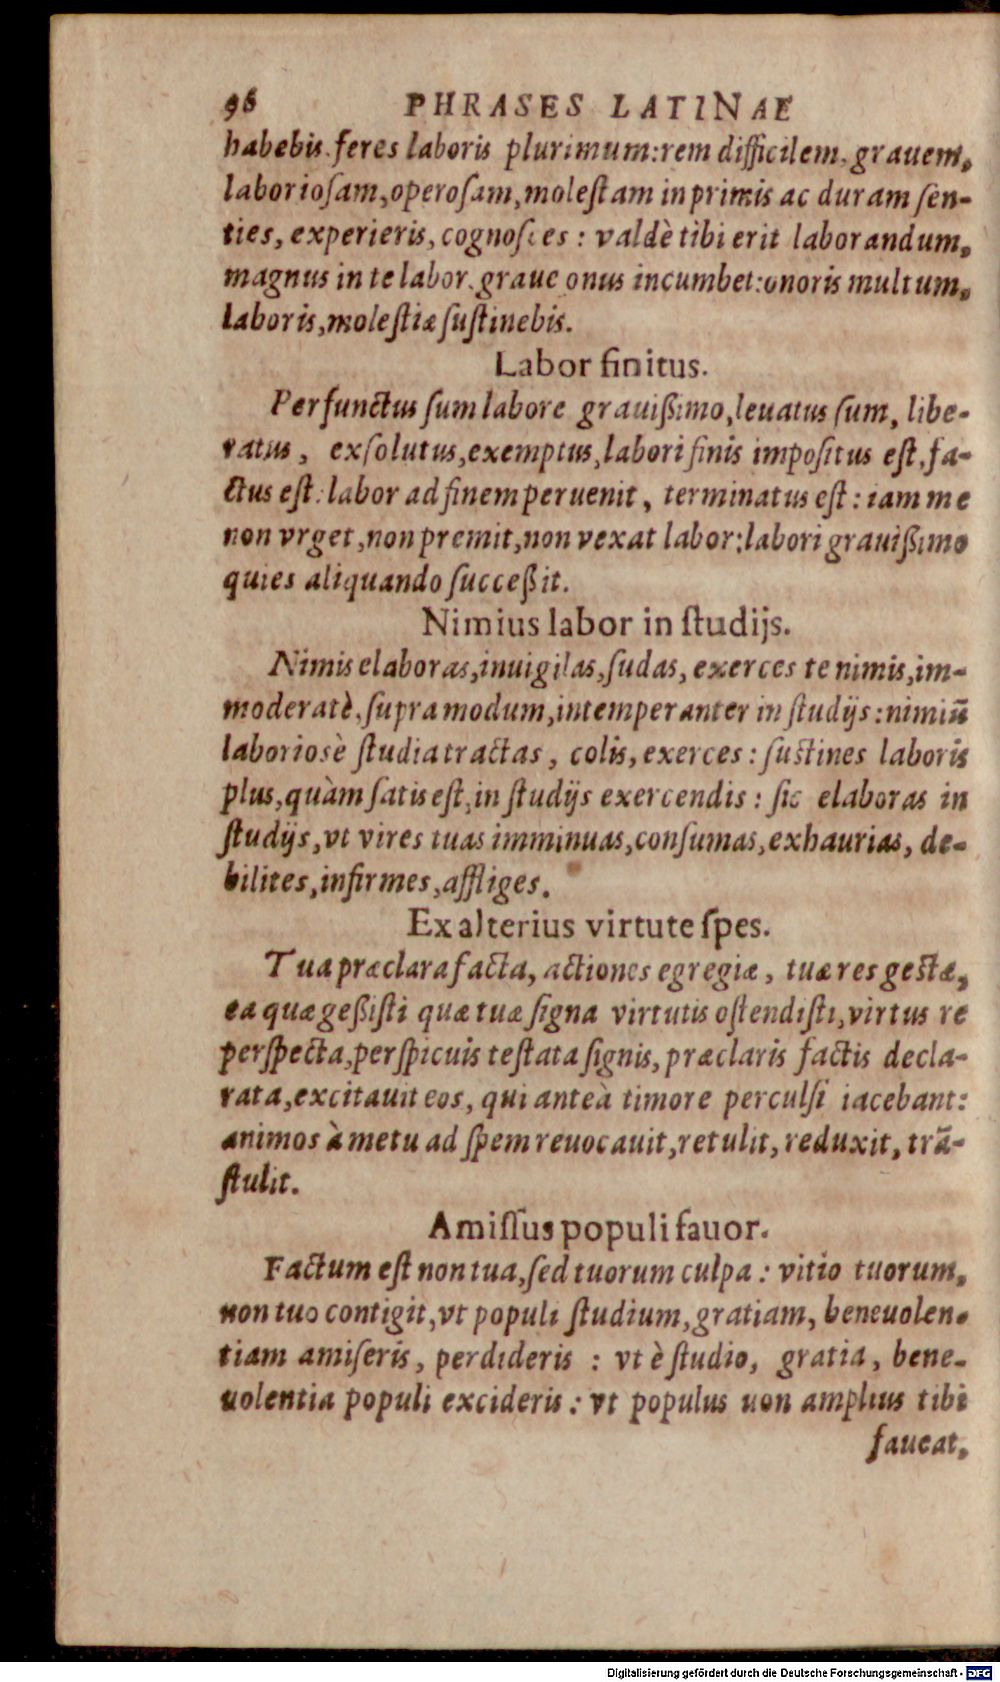 96 PHRASES LATINAE
habebis. feres laboris plurimum: rem difficilem, grauem,
laboriosam, operosam, molestam in primis ac duram sen-
ties, experieris, cognosces: valdè tibi erit laborandum,
magnus in te labor. graue onus incumbet: onoris multum,
laboris, molestiæ sustinebis.
Labor finitus.
Perfunctus sum labore grauißimo, leuatus sum, libe-
ratus, exsolutus, exemptus, labori finis impositus est, fa-
ctus est: labor ad finem peruenit, terminatus est: iam me
non vrget, non premit, non vexat labor: labori grauißimo
quies aliquando succeßit.
Nimius labor in studijs.
Nimis elaboras, inuigilas, sudas, exerces te nimis, im-
moderatè, supra modum, intemperanter in studijs: nimiū
laboriosè studia tractas, colis, exerces: sustines laboris
plus, quàm satis est, in studijs exercendis: sic elaboras in
studijs, vt vires tuas imminuas, consumas, exhaurias, de-
bilites, infirmes, affliges.
Ex alterius virtute spes.
Tua præclara facta, actiones egregiæ, tuæ res gestæ,
ea quæ geßisti quæ tuæ signa virtutis ostendisti, virtus re
perspecta, perspicuis testata signis, præclaris factis decla-
rata, excitauit eos, qui anteà timore perculsi iacebant:
animos à metu ad spem reuocauit, retulit, reduxit, trā-
stulit.
Amissus populi fauor.
Factum est non tua, sed tuorum culpa: vitio tuorum,
non tuo contigit, vt populi studium, gratiam, beneuolen-
tiam amiseris, perdideris: vt è studio, gratia, bene-
uolentia populi excideris: vt populus non amplius tibi
faueat,
Digitalisierung gefördert durch die Deutsche Forschungsgemeinschaft - DFG